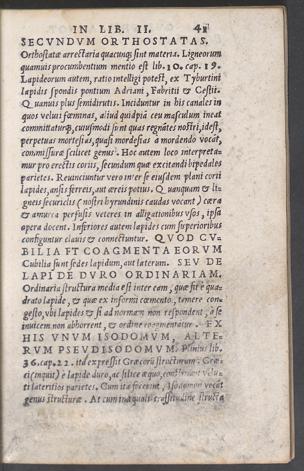 IN LIB. II. 41
SECVNDVM ORTHOSTATAS.
Orthostatæ arrectaria quæcunq; sint materia. Ligneorum
quamuis procumbentium mentio est lib. 10. cap. 19.
Lapideorum autem, ratio intelligi potest, ex Tyburtini
lapidis spondis pontium Adriani, Fabritii & Cestii.
Quamuis plus semidirutis. Inciduntur in his canales in
quos velut fœminas, aliud quidpiã ceu masculum ineat
committaturq;, cuiusmodi sunt quas regnãtes nostri, idest,
perpetuas mortesias, quasi mordesias à mordendo vocãt,
commissuræ scilicet genus. Hoc autem loco interpreta-
mur pro erectis coriis, secundum quæ excitandi bipedales
parietes. Reuinciuntur vero inter se eiusdem plani corii
lapides, ansis ferreis, aut æreis potius. Quanquam & li-
gneis securiclis (nostri hyrundinis caudas vocant) cæra
& amurca perfusis veteres in alligationibus vsos, ipsa
opera docent. Inferiores autem lapides cum superioribus
configuntur clauis & connectuntur. QVOD CV-
BILIA ET COAGMENTA EORVM
Cubilia sunt sedes lapidum, aut laterum. SEV DE
LAPIDE DVRO ORDINARIAM.
Ordinaria structura media est inter eam, quæ fit è qua-
drato lapide, & quæ ex informi cæmento, temere con-
gesto, vbi lapides & si ad normam non respondent, à se
inuicem non abhorrent, & ordine coagmentatur. EX
HIS VNVM ISODOMVM, ALTE-
RVM PSEVDISODOMVM. Plinius lib.
36. cap. 22. ita expressit Græcorũ structuram. Græ-
ci (inquit) è lapide duro, ac silice æquo, construunt velu-
ti lateritios parietes. Cum ita fecerint, Isodomon vocãt
genus structuræ. At cum inæquali crassitudine structa